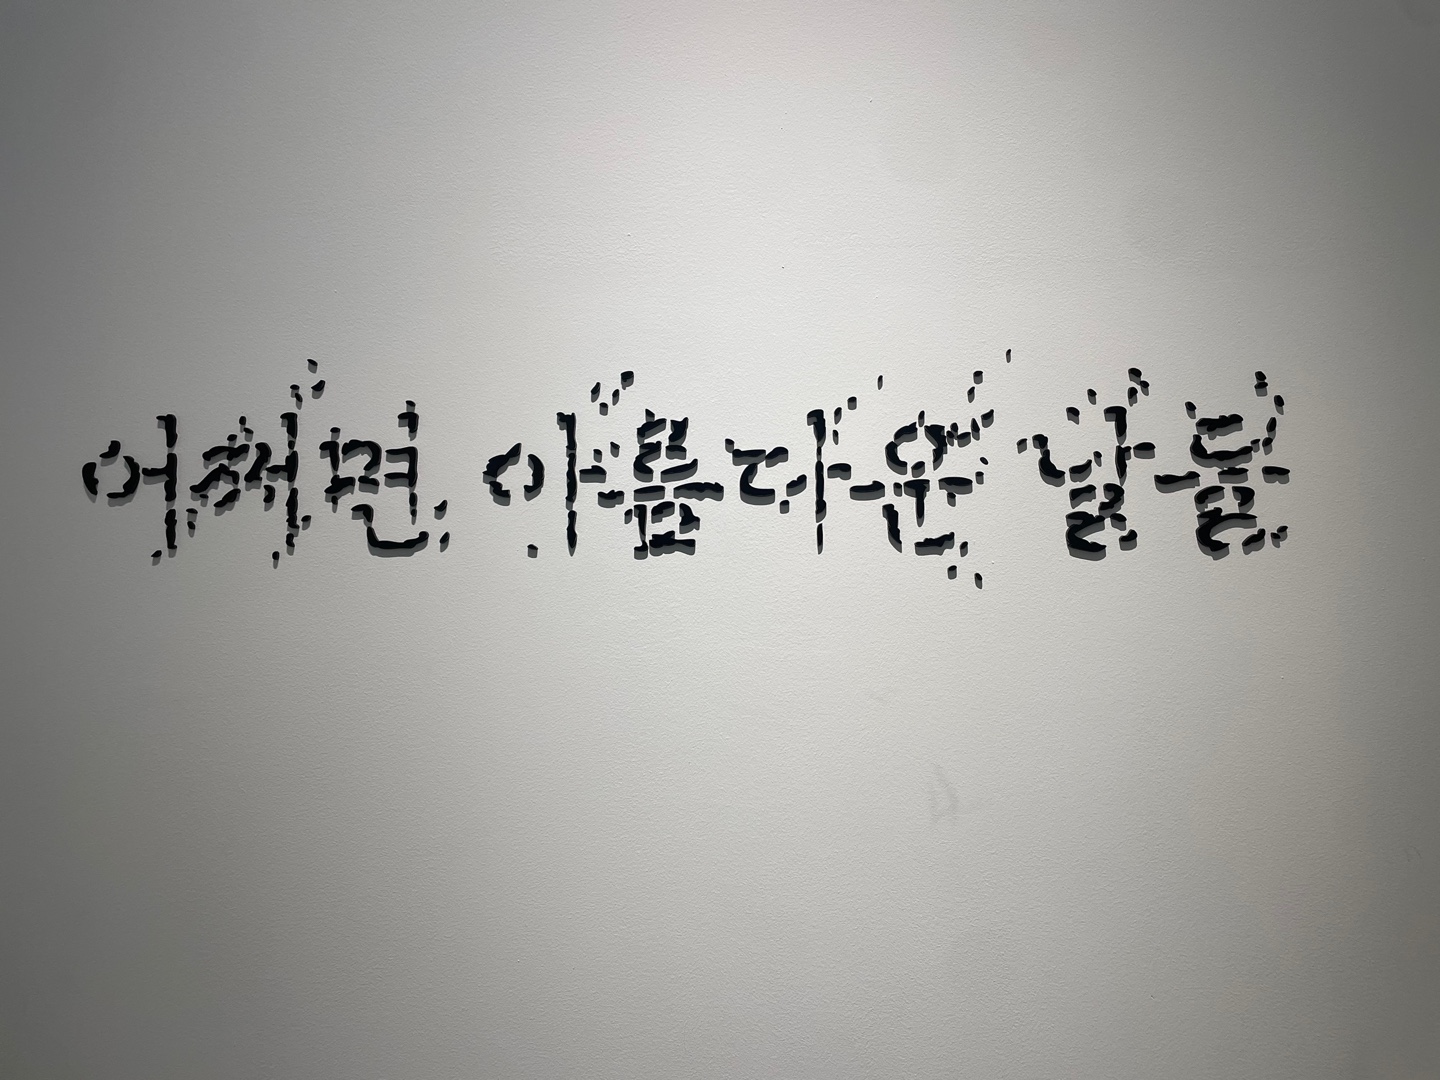 어쩌면 아름다운 날들